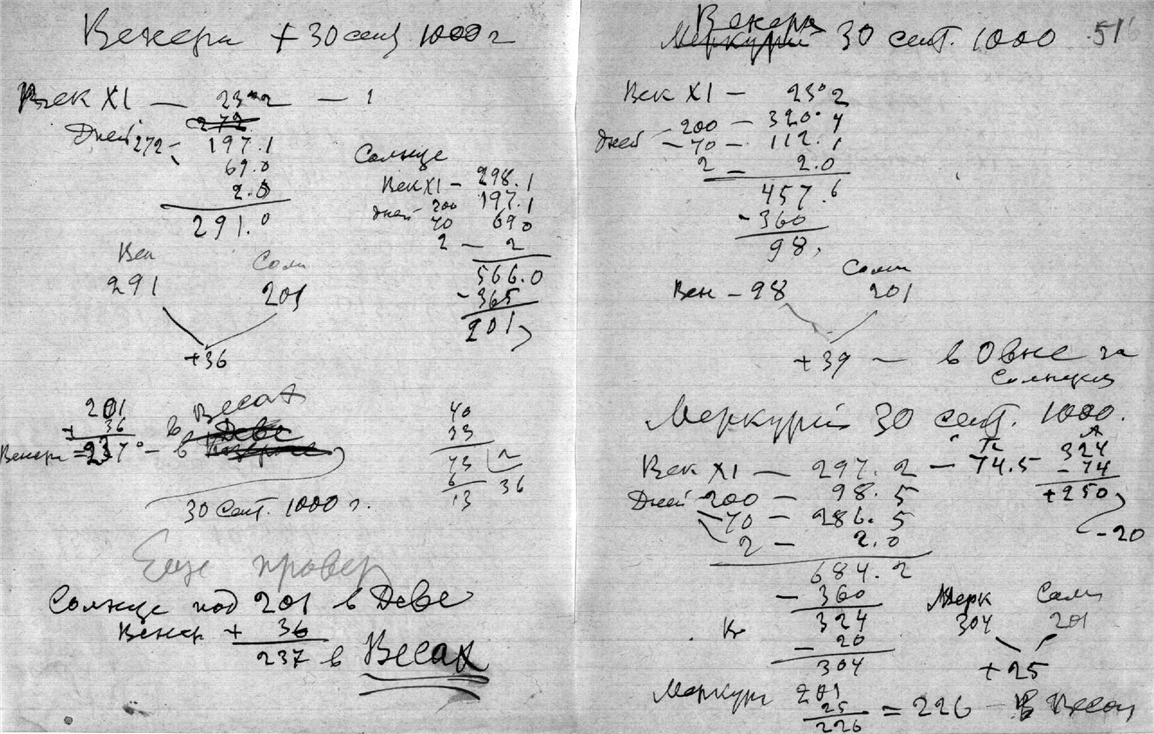 Венера + 30 сент 1000 г
Век XI — 23.2 — 1
272
Дней 272 — 197.1
69.0
2.0
291.0
Солнце
Век XI — 298.1
Дней 200 197.1
70 690
2 — 2
566.0
- 365
201
Вен Солн
291 201
+36
201
+ 36
Венера = 237° — в Весах
в Деве
30 сент. 1000 г.
40
33
73 2
6 36
13
Еще провер
Солнце под 201 в Деве
Венер + 36
237 в Весах
Венера
Меркурий 30 сент. 1000 516
Век XI — 25°2
Дней — 200 — 320.4
— 70 — 112.1
2 — 2.0
457.6
- 360
98,
Солн
Вен — 98 201
+39 — в Овне за
Солнцем
Меркурий 30 сент. 1000.
Век XI — 297.2 — 74.5
324
- 74
+250
-20
Дней 200 — 98.5
70 — 286.5
2 — 2.0
684.2
- 360
324
- 20
304
Мерк Солн
304 201
+25
Меркур 201
25
226 = 226 — в Весах